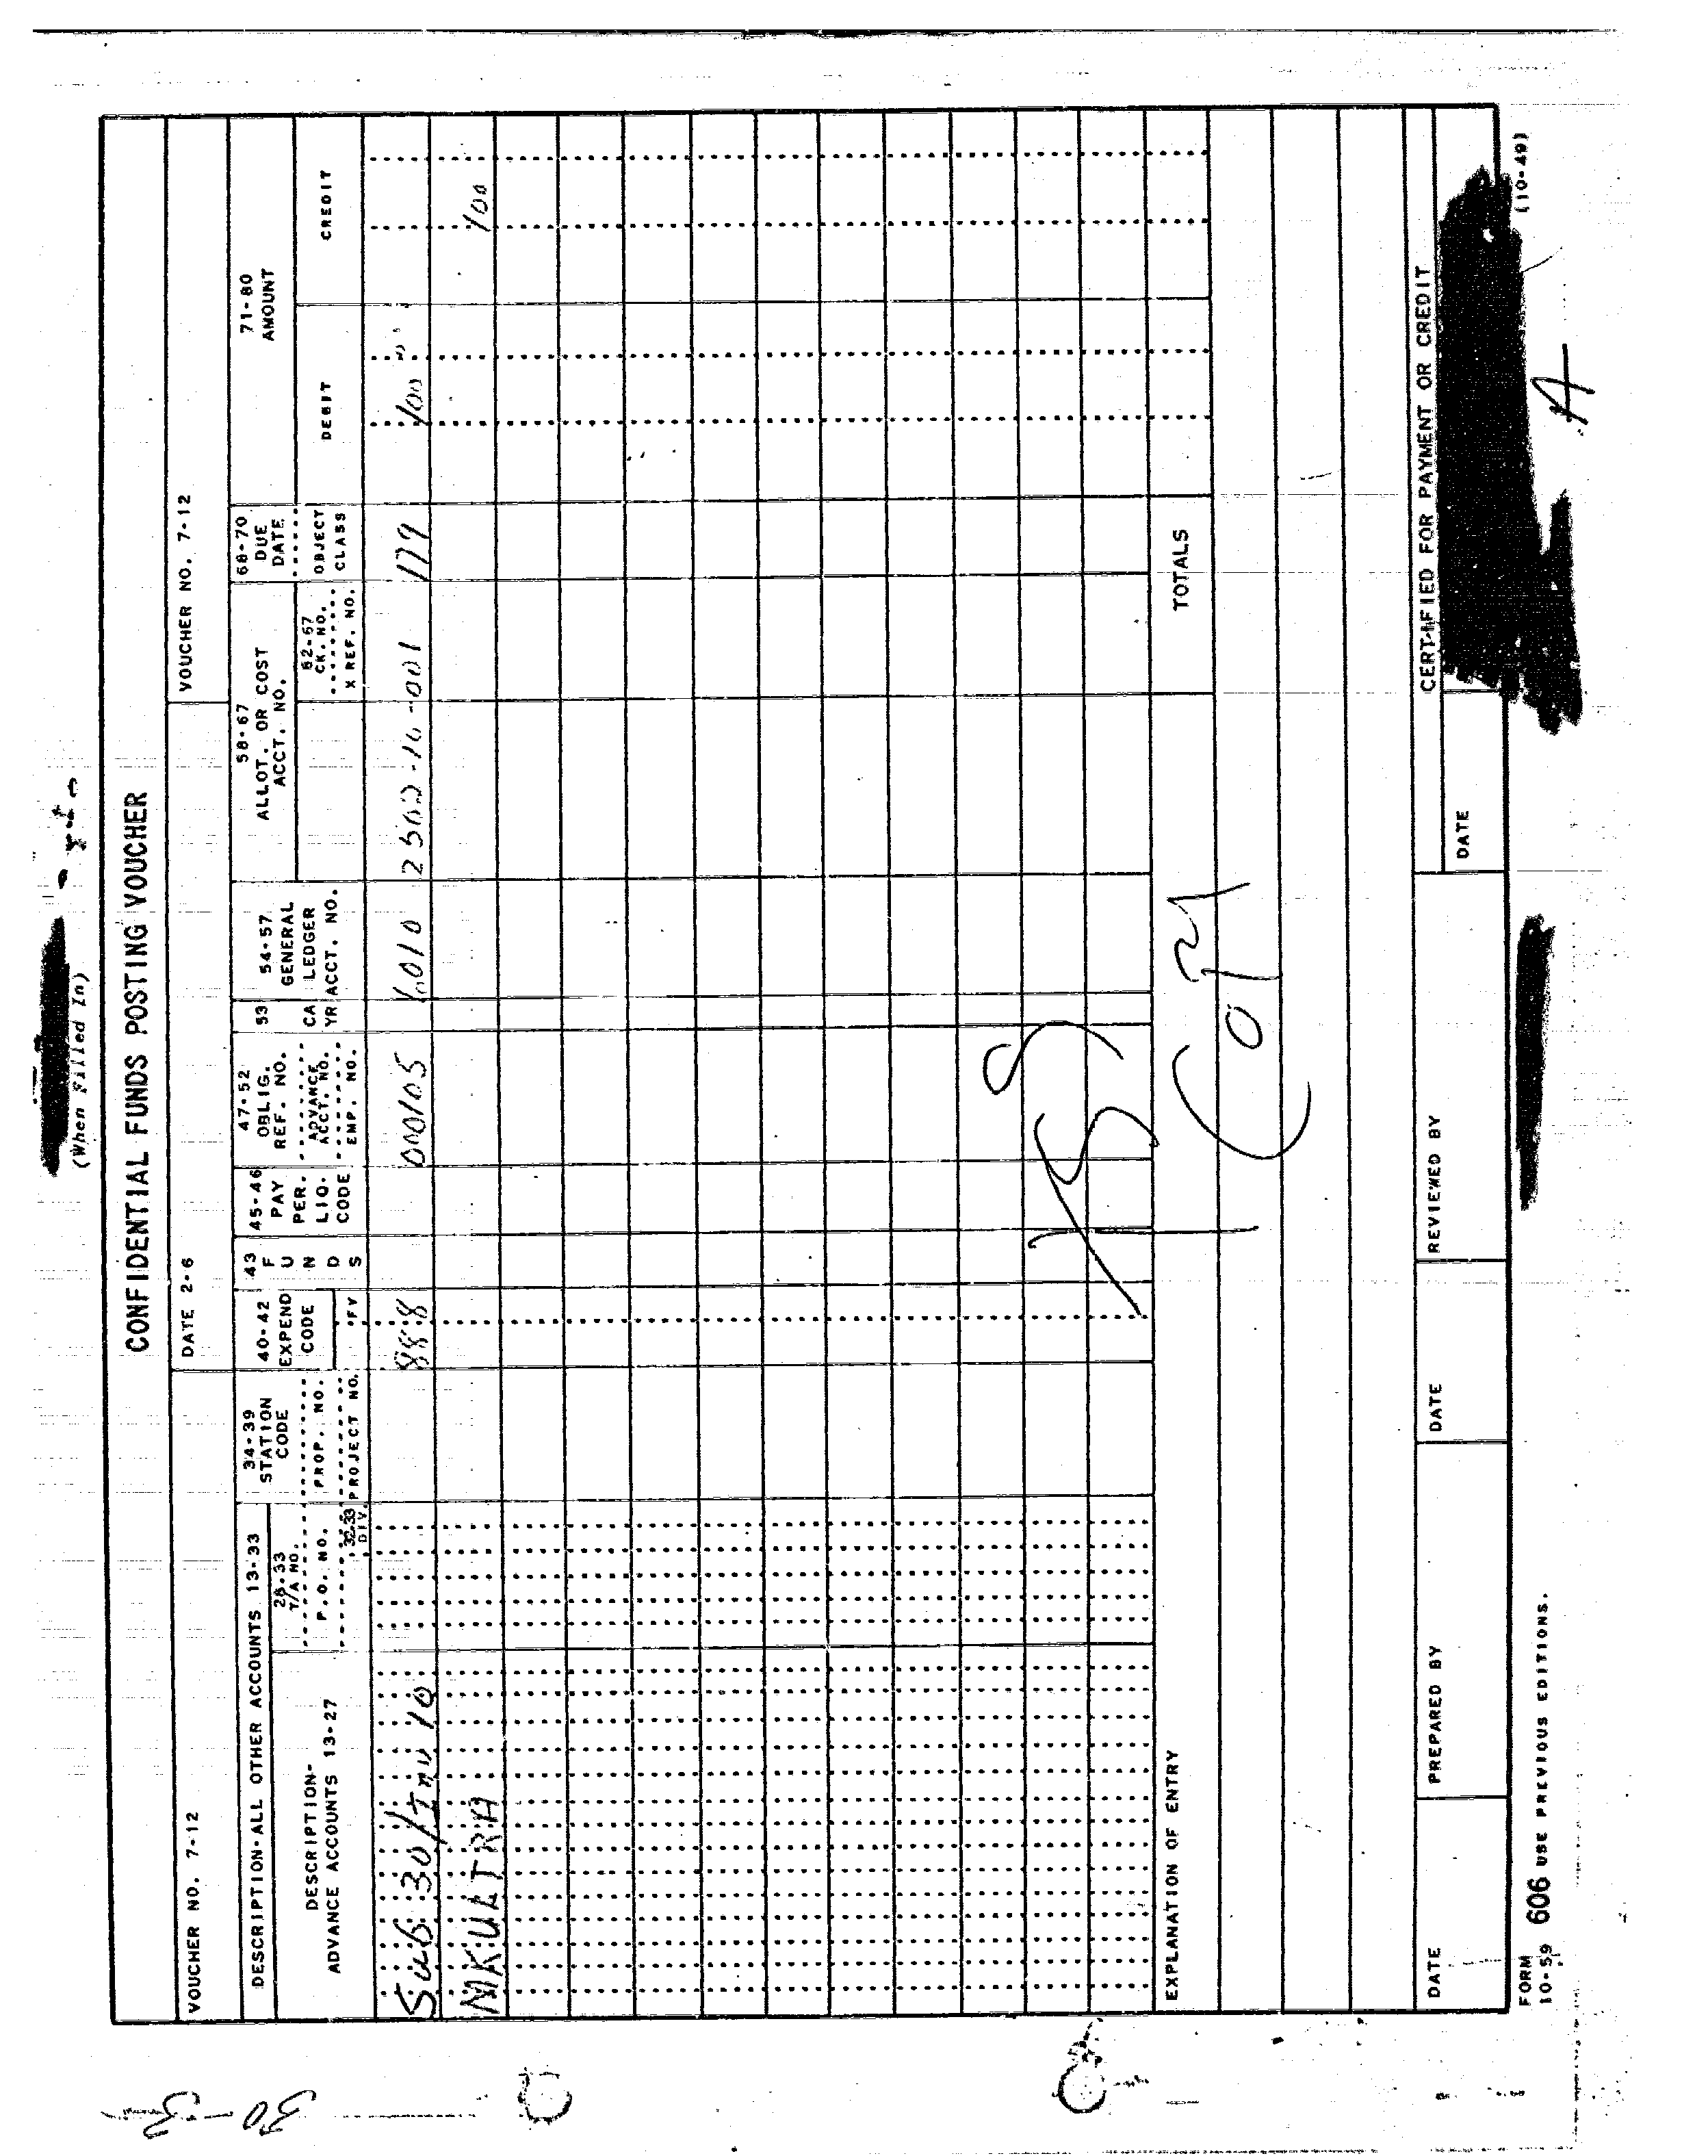 (When Filled In)
CONFIDENTIAL FUNDS POSTING VOUCHER
VOUCHER NO. 7-12
DATE 2-6
VOUCHER NO. 7-12
DESCRIPTION-ALL OTHER ACCOUNTS 13-33
DESCRIPTION-
ADVANCE ACCOUNTS 13-27
28-33
T/A NO.
P.O. NO.
32-33
DIV.
34-39
STATION
CODE
PROP. NO.
PROJECT NO.
40-42
EXPEND
CODE
FY
43
F
U
N
D
S
45-46
PAY
PER.
LIQ.
CODE
47-52
OBLIG.
REF. NO.
ADVANCE
ACCT. NO.
EMP. NO.
53
CA
YR
54-57
GENERAL
LEDGER
ACCT. NO.
58-67
ALLOT. OR COST
ACCT. NO.
62-67
CK. NO.
X REF. NO.
68-70
DUE
DATE
OBJECT
CLASS
71-80
AMOUNT
DEBIT
CREDIT
Sub 30/Inv 10 888 000105 6010 2502-10-001 179 100
MKULTRA 100
TSS
Copy
EXPLANATION OF ENTRY
TOTALS
DATE
PREPARED BY
DATE
REVIEWED BY
CERTIFIED FOR PAYMENT OR CREDIT
DATE
FORM
10-59 606 USE PREVIOUS EDITIONS.
(10-49)
A
30-3